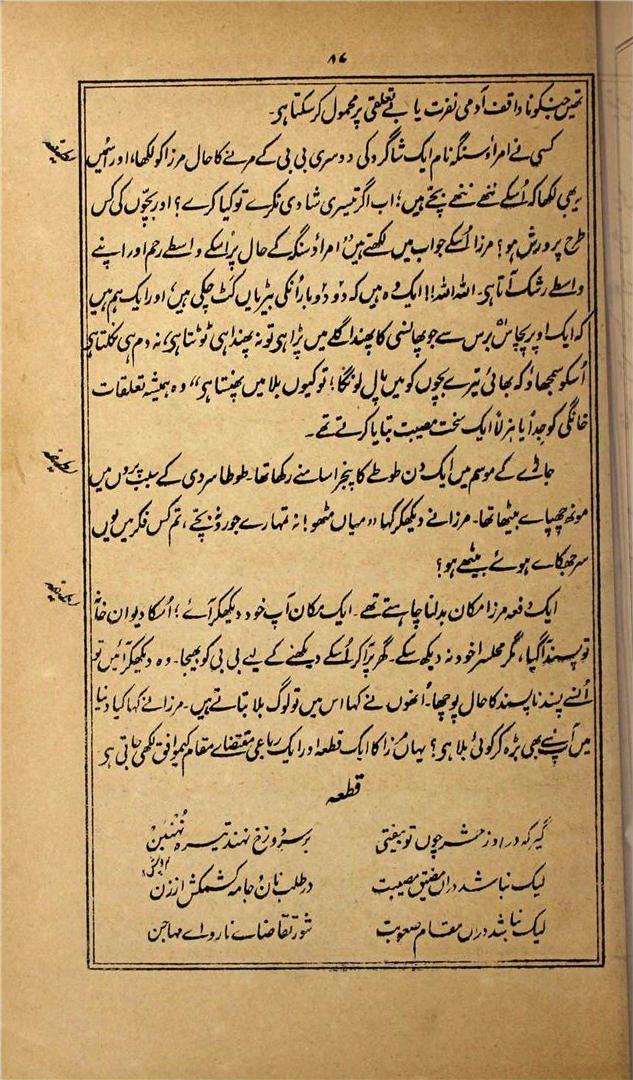 ۸۷
تھیں جنکو ناواقف آدمی نفرت یا بے تعلقی پر محمول کر سکتا ہو۔
کسی نے امراؤ سنگہ نام ایک شاگرد کی دوسری بی بی کے مرنے کا حال مرزا کو لکھا، اور اسمیں
یہ بھی لکھا کہ اُسکے ننھے ننھے بچے ہیں؛ اب اگر تیسری شادی نکرے تو کیا کرے؟ اور بچوں کی کس
طرح پرورش ہو؟ مرزا اُسکے جواب میں لکھتے ہیں "امراؤ سنگہ کے حال پر اُسکے واسطے رحم اور اپنے
واسطے رشک آتا ہی۔ اللہ اللہ!! ایک وہ ہیں کہ دو دو بار اُنکی بیڑیاں کٹ چکی ہیں؛ اور ایک ہم ہیں
کہ ایک اوپر پچاس برس سے جو پھانسی کا پھندا گلے میں پڑا ہی تو نہ پھندا ہی ٹوٹتا ہی، نہ دم ہی نکلتا ہی
اُسکو سمجھاؤ کہ بھائی تیرے بچوں کو میں پال لونگا؛ تو کیوں بلا میں پھنستا ہی" وہ ہمیشہ تعلقات
خانگی کو جداً یا ہزلاً ایک سخت مصیبت بتایا کرتے تھے۔
لطیفہ
جاڑے کے موسم میں ایک دن طوطے کا پنجرا سامنے رکھا تھا۔ طوطا سردی کے سبب پروں میں
مونھ چھپاے بیٹھا تھا۔ مرزا نے دیکھکر کہا "میاں مٹھو! نہ تمہارے جورو نہ بچے، تم کس فکر میں یوں
سر جھکاے ہوئے بیٹھے ہو؟
ایک دفعہ مرزا مکان بدلنا چاہتے تھے۔ ایک مکان آپ خود دیکھکر آئے؛ اُسکا دیوان خانہ
تو پسند آگیا، مگر محلسرا خود نہ دیکھ سکے۔ گھر پر آکر اُسکے دیکھنے کے لیے بی بی کو بھیجا۔ وہ دیکھکر آئیں تو
اُنسے پسند ناپسند کا حال پوچھا۔ اُنھوں نے کہا اس میں تو لوگ بلا بتاتے ہیں۔ مرزا نے کہا کیا دنیا
میں آپسے بھی بڑہ کر کوئی بلا ہی؟ یہاں مرزا کا ایک قطعہ اور ایک رباعی مقتضاے مقام کے موافق لکھی جاتی ہی
قطعہ
گیر کہ در روز حشر چوں تو بیفتی بر سر دوزخ نہند تیرہ نُہنبن
لیک نباشد دراں مضیق مصیبت در طلب نان و جامہ کشمکش از زن
لیک نباشد دراں مقام صعوبت شور تقاضاے نارواے مہاجن